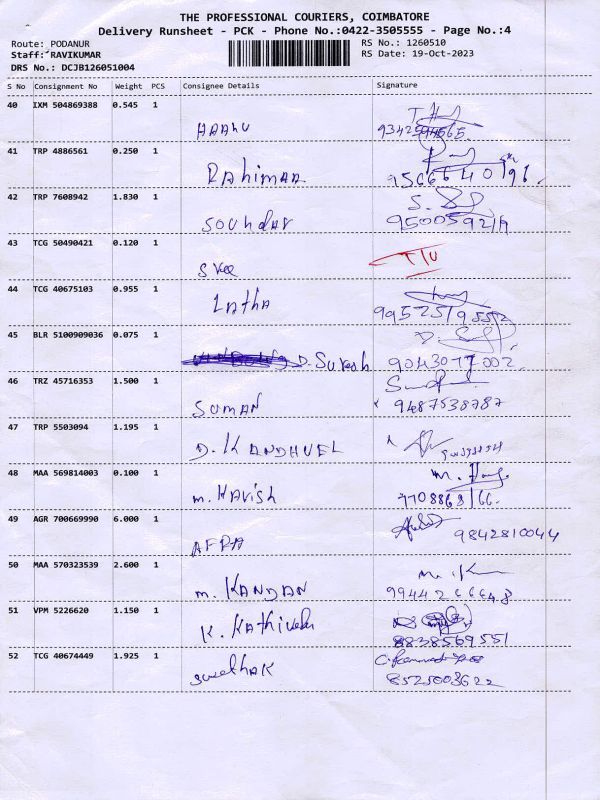 THE PROFESSIONAL COURIERS, COIMBATORE
Delivery Runsheet - PCK - Phone No.:0422-3505555 - Page No.:4
Route: PODANUR
RS No.: 1260510
Staff: RAVIKUMAR
RS Date: 19-Oct-2023
DRS No.: DCJB126051004
S No Consignment No Weight PCS Consignee Details Signature
40 IXM 504869388 0.545 1
41 TRP 4886561 0.250 1
Rahiman
42 TRP 7608942 1.830 1
Soundar 9500592119
43 TCG 50490421 0.120 1
Sree
44 TCG 40675103 0.955 1
Latha
45 BLR 5100909036 0.075 1
D. Suresh 9043077002
46 TRZ 45716353 1.500 1
SUMAN 9487538787
47 TRP 5503094 1.195 1
D. KANDHVEL
48 MAA 569814003 0.100 1
m. Harish 9708868166
49 AGR 700669990 6.000 1
9842810044
50 MAA 570323539 2.600 1
m. KANDAN 9944266648
51 VPM 5226620 1.150 1
K. Kathirvelu 8838569551
52 TCG 40674449 1.925 1
8525003622